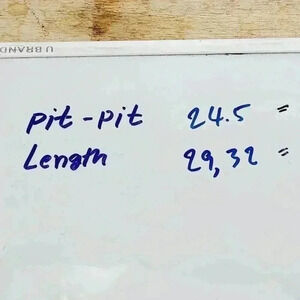 U BRAND
pit-pit 24.5 "
Length 29,32 "